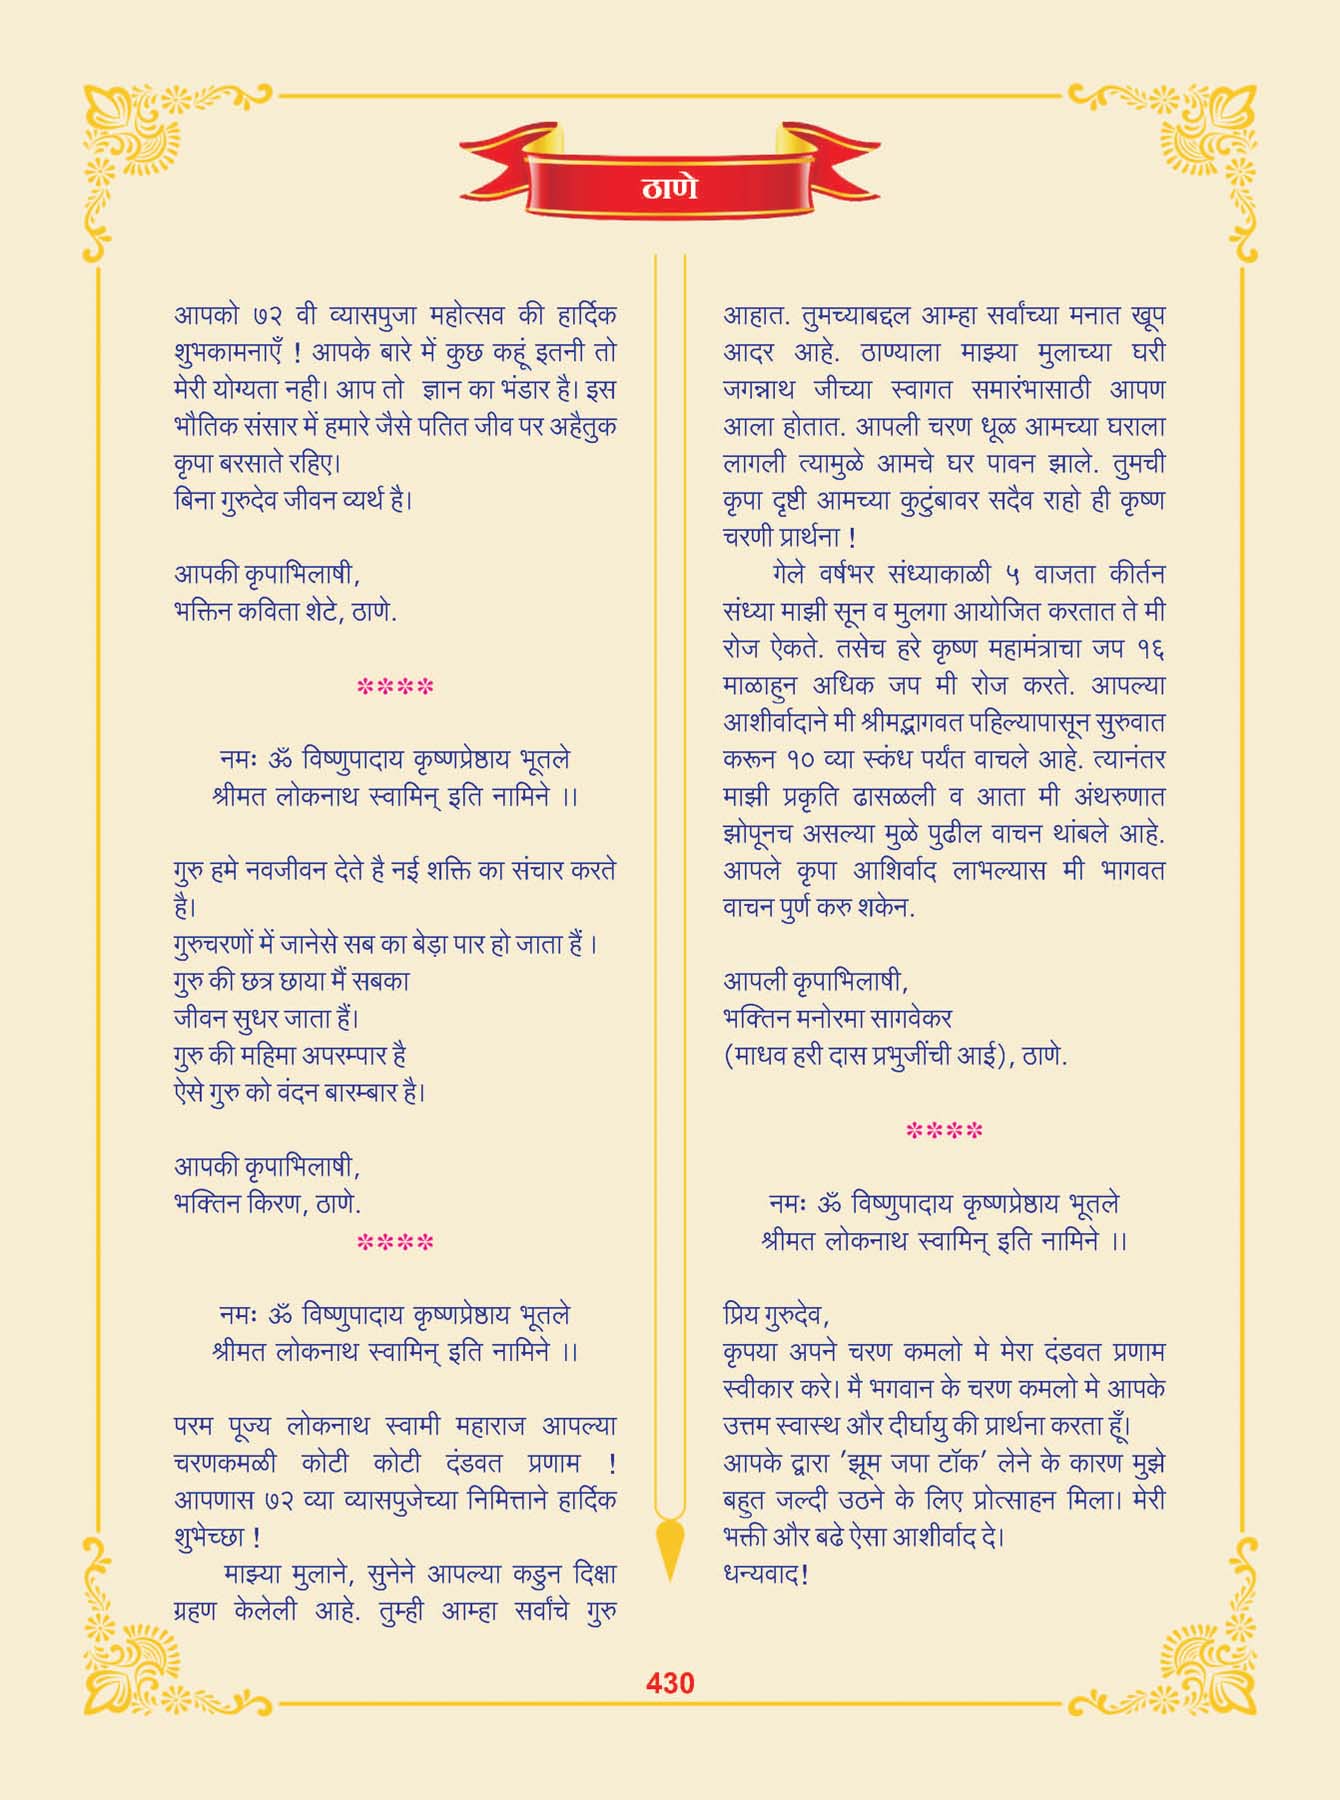 ठाणे
आपको ७२ वी व्यासपुजा महोत्सव की हार्दिक
शुभकामनाएँ ! आपके बारे में कुछ कहूं इतनी तो
मेरी योग्यता नही। आप तो ज्ञान का भंडार है। इस
भौतिक संसार में हमारे जैसे पतित जीव पर अहैतुक
कृपा बरसाते रहिए।
बिना गुरुदेव जीवन व्यर्थ है।
आपकी कृपाभिलाषी,
भक्तिन कविता शेटे, ठाणे.
****
नमः ॐ विष्णुपादाय कृष्णप्रेष्ठाय भूतले
श्रीमत लोकनाथ स्वामिन् इति नामिने ।।
गुरु हमे नवजीवन देते है नई शक्ति का संचार करते
है।
गुरुचरणों में जानेसे सब का बेड़ा पार हो जाता हैं ।
गुरु की छत्र छाया मैं सबका
जीवन सुधर जाता हैं।
गुरु की महिमा अपरम्पार है
ऐसे गुरु को वंदन बारम्बार है।
आपकी कृपाभिलाषी,
भक्तिन किरण, ठाणे.
****
नमः ॐ विष्णुपादाय कृष्णप्रेष्ठाय भूतले
श्रीमत लोकनाथ स्वामिन् इति नामिने ।।
परम पूज्य लोकनाथ स्वामी महाराज आपल्या
चरणकमळी कोटी कोटी दंडवत प्रणाम !
आपणास ७२ व्या व्यासपुजेच्या निमित्ताने हार्दिक
शुभेच्छा !
माझ्या मुलाने, सुनेने आपल्या कडुन दिक्षा
ग्रहण केलेली आहे. तुम्ही आम्हा सर्वांचे गुरु
आहात. तुमच्याबद्दल आम्हा सर्वांच्या मनात खूप
आदर आहे. ठाण्याला माझ्या मुलाच्या घरी
जगन्नाथ जीच्या स्वागत समारंभासाठी आपण
आला होतात. आपली चरण धूळ आमच्या घराला
लागली त्यामुळे आमचे घर पावन झाले. तुमची
कृपा दृष्टी आमच्या कुटुंबावर सदैव राहो ही कृष्ण
चरणी प्रार्थना !
गेले वर्षभर संध्याकाळी ५ वाजता कीर्तन
संध्या माझी सून व मुलगा आयोजित करतात ते मी
रोज ऐकते. तसेच हरे कृष्ण महामंत्राचा जप १६
माळाहुन अधिक जप मी रोज करते. आपल्या
आशीर्वादाने मी श्रीमद्भागवत पहिल्यापासून सुरुवात
करून १० व्या स्कंध पर्यंत वाचले आहे. त्यानंतर
माझी प्रकृति ढासळली व आता मी अंथरुणात
झोपूनच असल्या मुळे पुढील वाचन थांबले आहे.
आपले कृपा आशिर्वाद लाभल्यास मी भागवत
वाचन पुर्ण करु शकेन.
आपली कृपाभिलाषी,
भक्तिन मनोरमा सागवेकर
(माधव हरी दास प्रभुजींची आई), ठाणे.
****
नमः ॐ विष्णुपादाय कृष्णप्रेष्ठाय भूतले
श्रीमत लोकनाथ स्वामिन् इति नामिने ।।
प्रिय गुरुदेव,
कृपया अपने चरण कमलो मे मेरा दंडवत प्रणाम
स्वीकार करे। मै भगवान के चरण कमलो मे आपके
उत्तम स्वास्थ और दीर्घायु की प्रार्थना करता हूँ।
आपके द्वारा ’झूम जपा टॉक’ लेने के कारण मुझे
बहुत जल्दी उठने के लिए प्रोत्साहन मिला। मेरी
भक्ती और बढे ऐसा आशीर्वाद दे।
धन्यवाद!
430